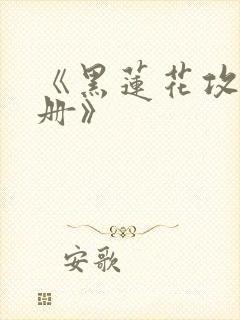 《黑蓮花攻
册》
安歌